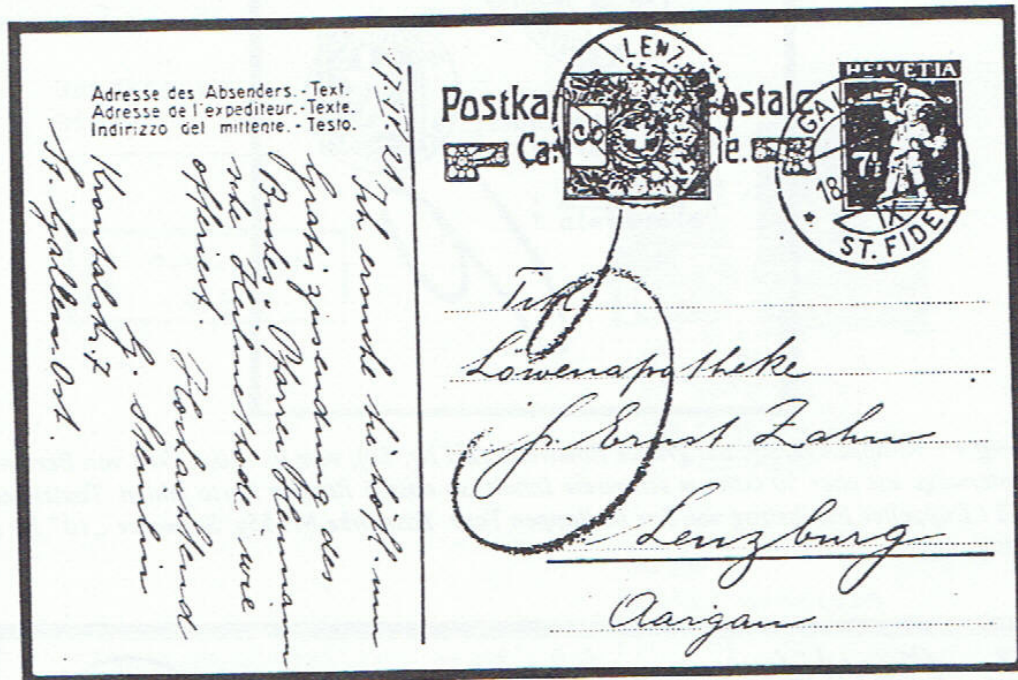 Adresse des Absenders.-Text.
Adresse de l'expediteur.-Texte.
Indirizzo del mittente.-Testo.
Ich ersuche Sie höfl. um
Gratis zusendung des
Buches Pfarrer Künzle
wie Heilmethode wie
offeriert
Hochachtend
G. Stähelin
Kronthalstr. 7
St. Gallen-Ost.
Postkar ostale
Ca e.
LENZ
HELVETIA
7½
GAL
18 IX
ST. FIDE
Tit.
Löwenapotheke
Ernst Zahn
Lenzburg
Aargau